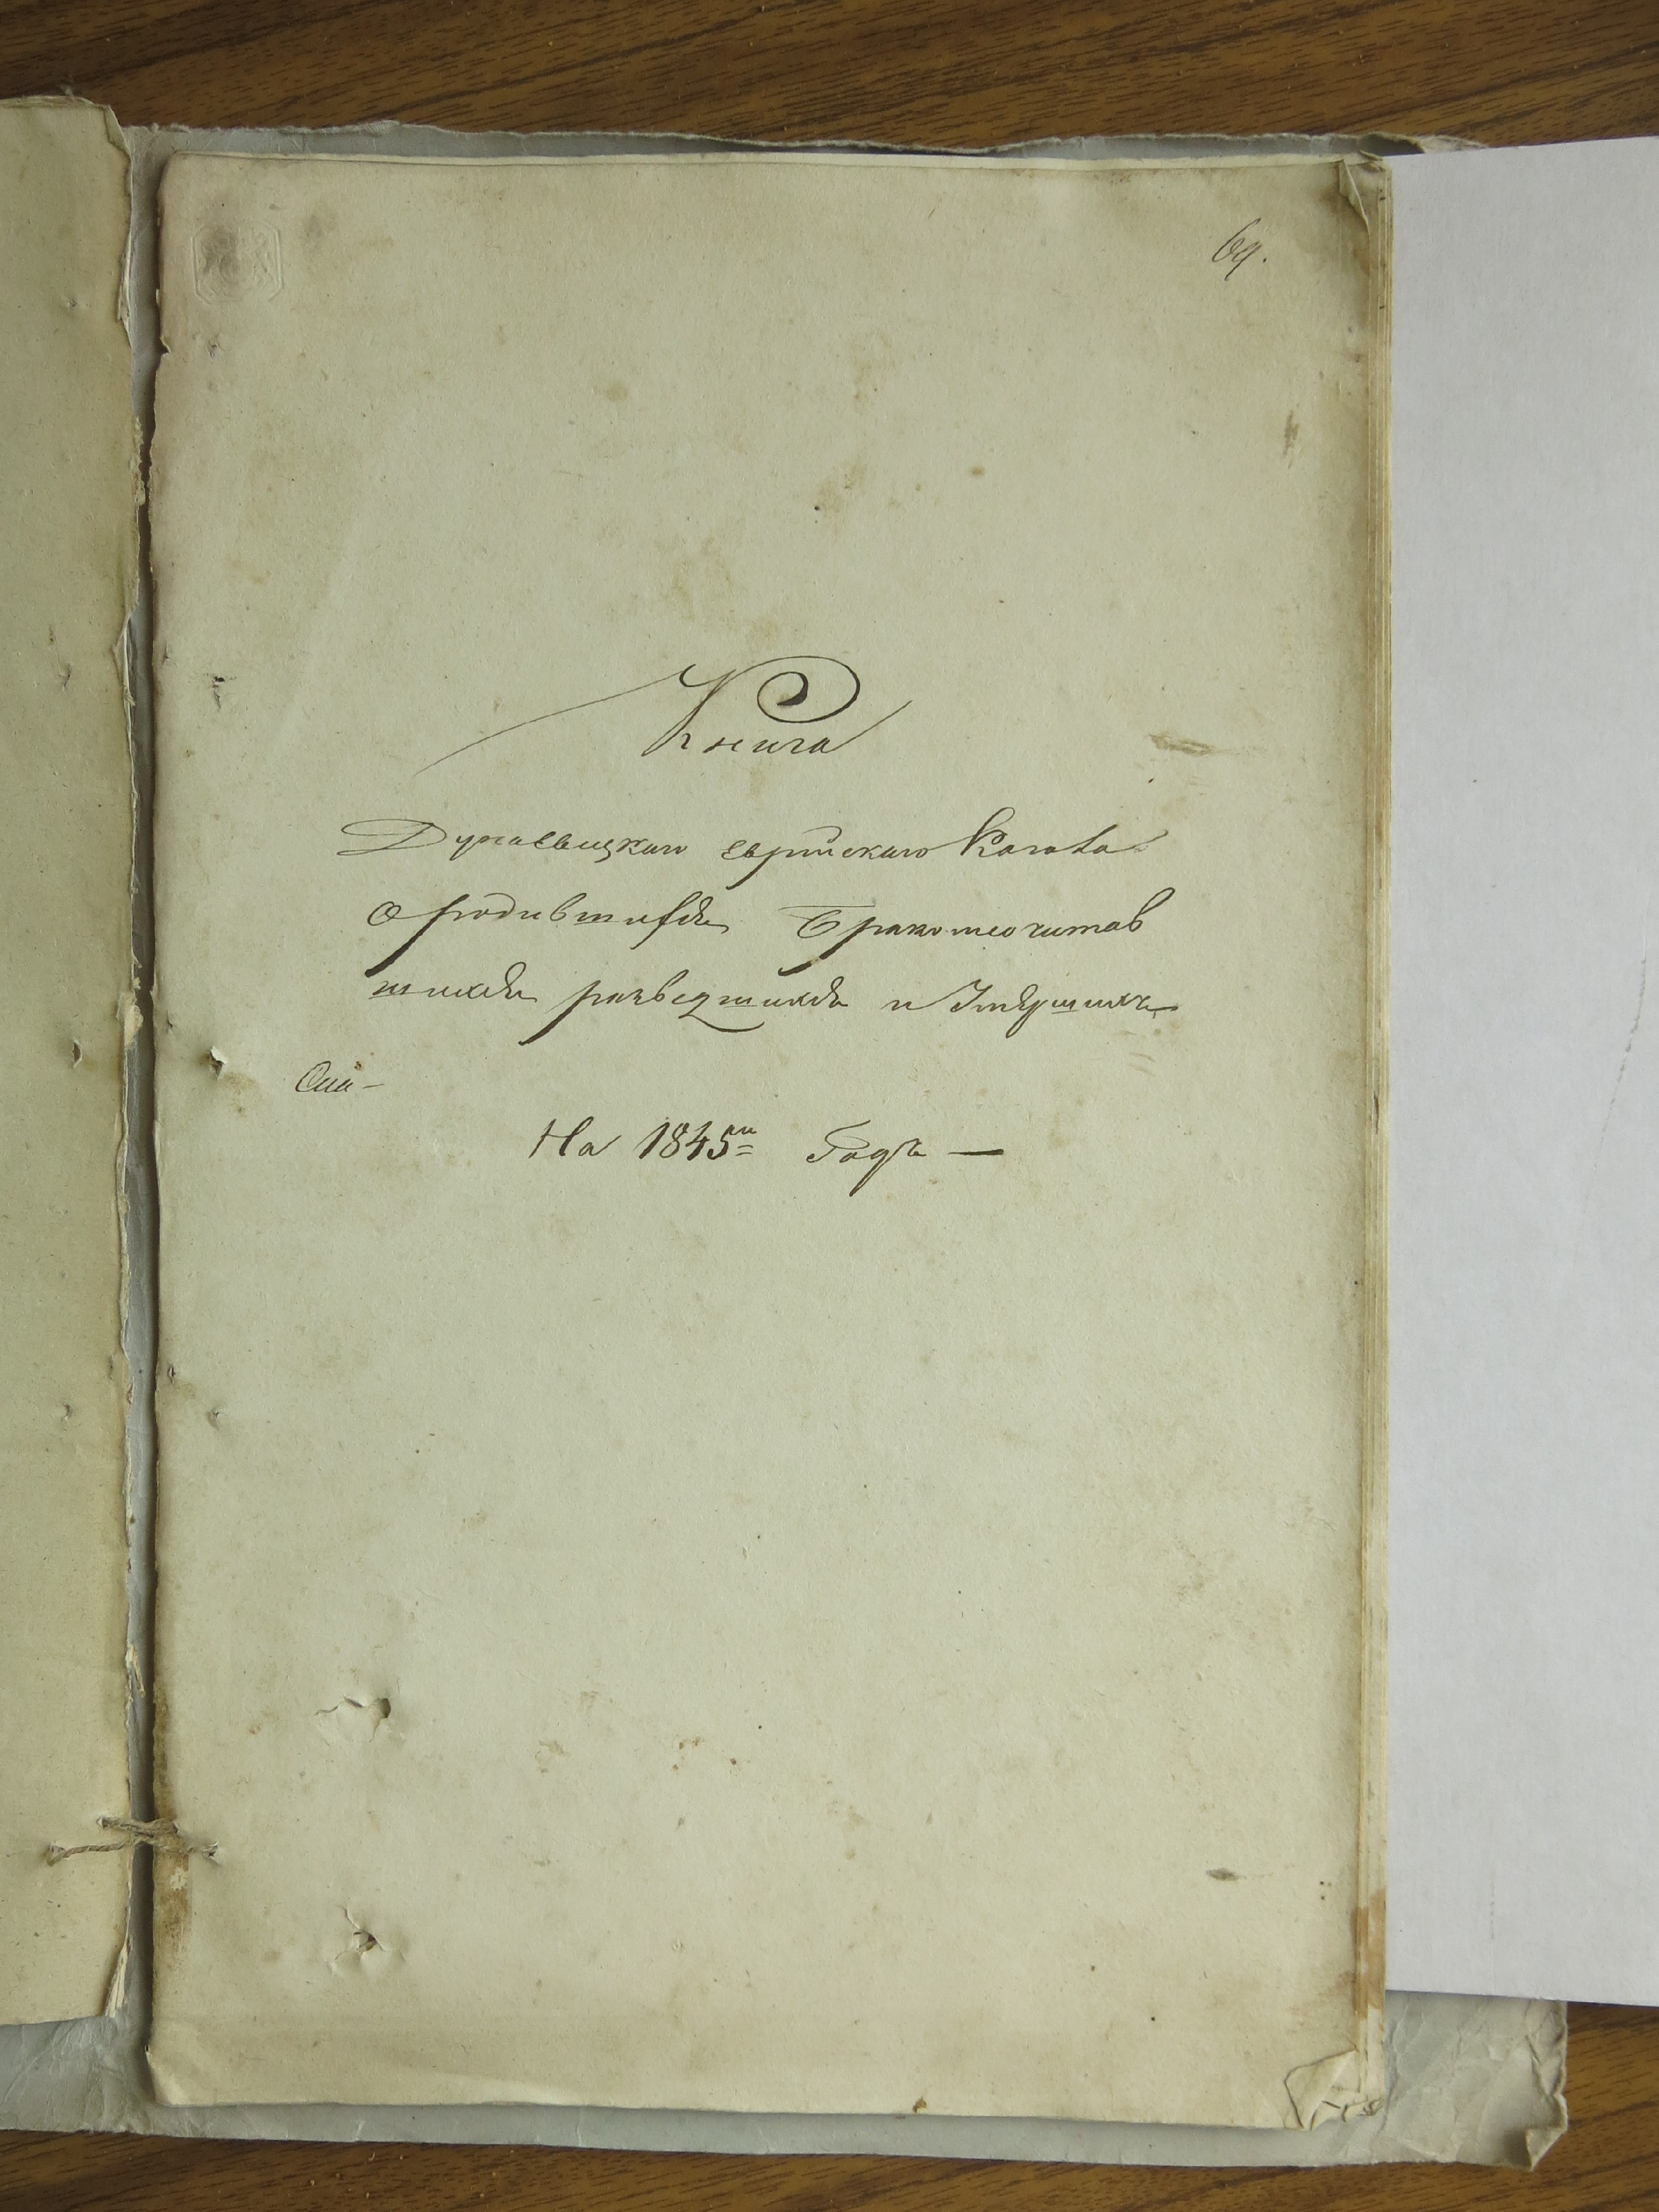 69.
Книга
Дунаевецкаго еврейскаго Кагала
О родившихся Бракосочитав
шихся разведшихся и Умершихъ
На 1845й Годъ —